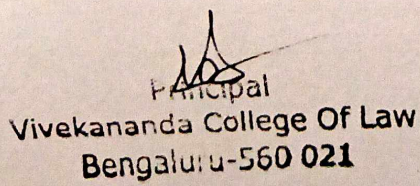 Principal
Vivekananda College Of Law
Bengaluru-560 021